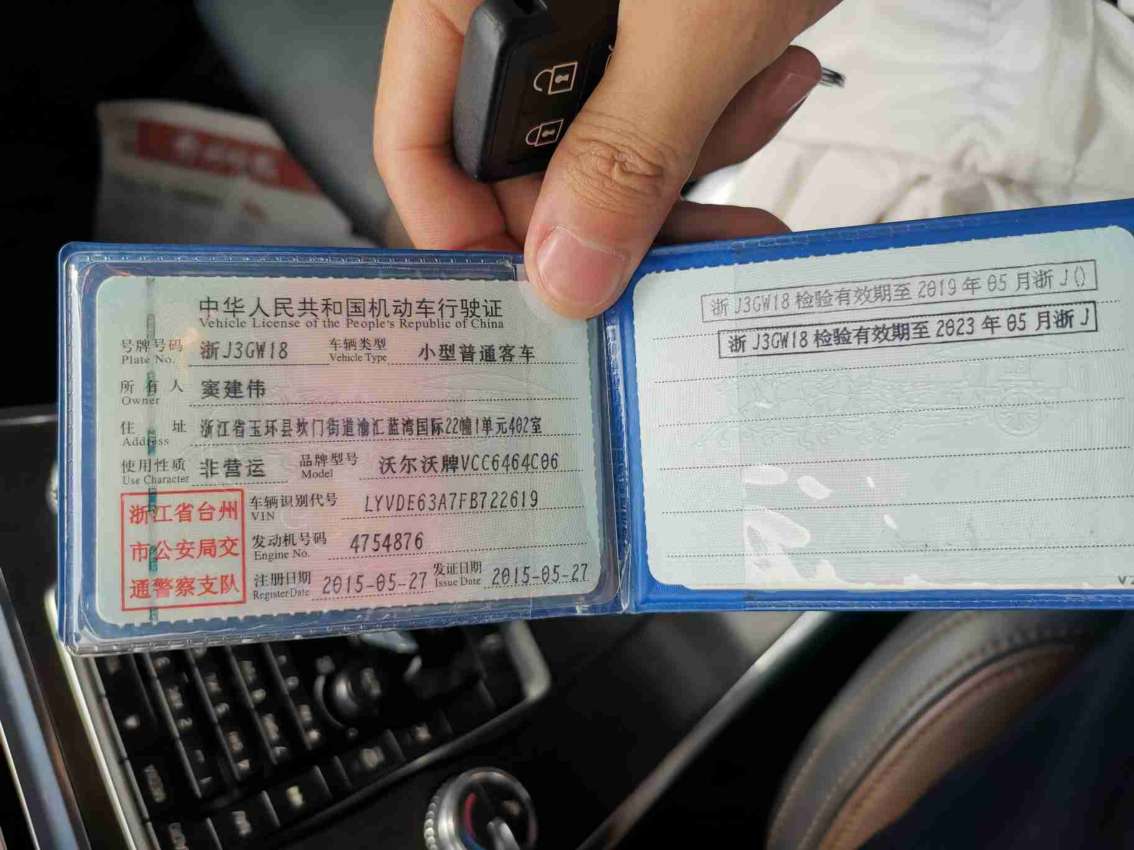 中华人民共和国机动车行驶证
Vehicle License of the People's Republic of China
号牌号码 浙J3GW18 车辆类型 小型普通客车
Plate No. Vehicle Type
所有人 窦建伟
Owner
住址 浙江省玉环县坎门街道渝汇蓝湾国际22幢1单元402室
Address
使用性质 非营运 品牌型号 沃尔沃牌VCC6464C06
Use Character Model
车辆识别代号 LYVDE63A7FB722619
VIN
发动机号码 4754876
Engine No.
注册日期 2015-05-27 发证日期 2015-05-27
Register Date Issue Date
浙江省台州
市公安局交
通警察支队
浙J3GW18检验有效期至2019年05月浙J()
浙J3GW18检验有效期至2023年05月浙J